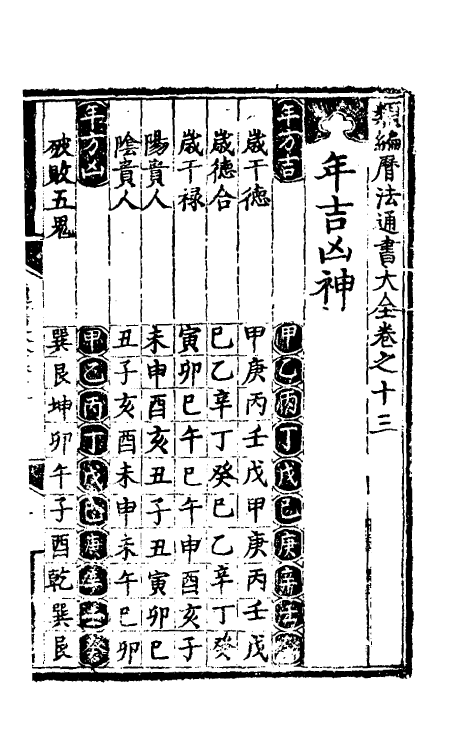 類編曆法通書大全卷之十三
年吉凶神
年方吉 甲乙丙丁戊己庚辛壬癸
歲干德 甲庚丙壬戊甲庚丙壬戊
歲德合 巳乙辛丁癸巳乙辛丁癸
歲干禄 寅卯巳午巳午申酉亥子
陽貴人 未申酉亥丑子丑寅卯巳
陰貴人 丑子亥酉未申未午巳卯
年方凶 甲乙丙丁戊己庚辛壬癸
破敗五鬼 巽艮坤卯午子酉乾巽艮